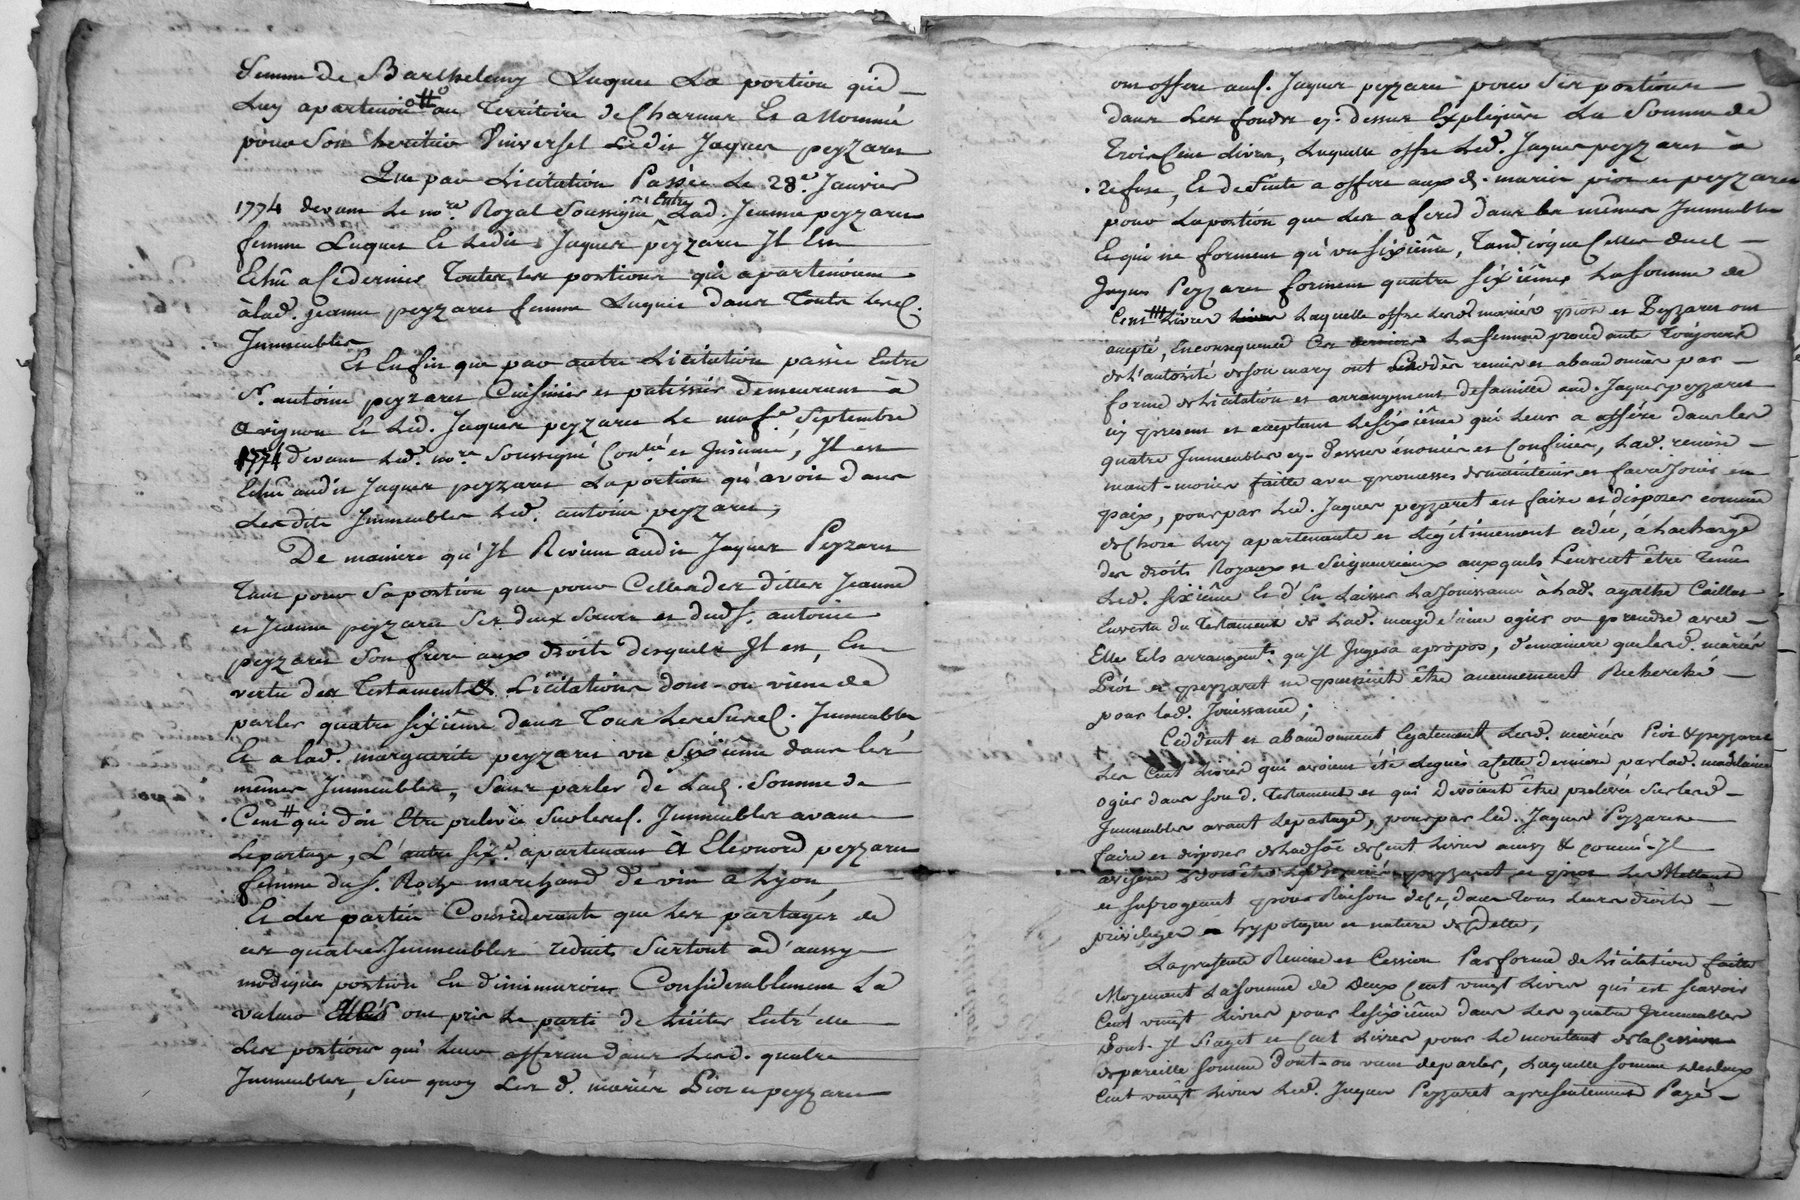 femme de Barthelemy Luques La portion qui
Luy apartenoit au Territoire de Charmes Et a Nommé
pour Son heritier Universel Ledit Jaques peyzaret
Que par Licitation Passée Le 28e. Janvier
1774 devant Le nore. Royal Soussigné Entre Lad. Jeanne peyzaret
femme Luques Et Ledit Jaques peyzaret Il Est
Echû a Ce dernier Toutes les portions qui apartenoient
à lad. jeanne peyzaret femme Luques dans Touts Lesd.
Immeubles
Et Enfin que par autre Licitation passée Entre
Sr. antoine peyzaret Cuisinier et patissier demeurant à
avignon Et Led. Jaques peyzaret Le neufe. Septembre
1774 devant Led. nore. Soussigné Conlé. et Insinué, Il est
Echû audit Jaques peyzaret La portion qu'avoit dans
Lesdits Immeubles Led. antoine peyzaret,
De maniere qu'Il Revient audit Jaques Peyzaret
Tant pour Sa portion que pour Celles des dittes Jeanne
et Jeanne peyzaret Ses deux Sœurs et dud. Sr. antoine
peyzaret Son frere aux droits desquels Il est, En
vertu des Testament & Licitations dont-on vient de
parler quatre Sixiême dans Tous Les Susd. Immeubles
Et a lad. marguerite peyzaret un Sixiême dans les
mêmes Immeubles, Sans parler de Lad. Somme de
Cent ₶ qui doit Etre prelevée Sur lesd. Immeubles avant
Le partage, L'autre Sixe. apartenant à Eleonord peyzaret
femme du Sr. Roche marchand de vin a Lyon,
Et les parties Considerants que Les partages de
ces quatre Immeubles reduits Surtout a d'aussy
modiques portions En diminueroit Considerablement La
valeur Elles ont pris Le parti de Liciter Entr'elles
Les portions qui Leur afferent dans Lesd. quatre
Immeubles, Sur quoy Les d. mariés Pios et peyzaret
ont offert aud. Jaques peyzaret pour Ses portions
dans Les fonds cy-dessus Expliqués La Somme de
Trois Cent Livres, Laquelle offre Led. Jaques peyzaret à
refusé, Et de Suite a offert auxd. mariés pios et peyzaret
pour La portion que Les afered dans les mêmes Immeubles
Et qui ne forment qu'un Sixiême, Tandisque Celles dud.
Jaques Peyzaret forment quatre Sixiêmes La Somme de
Cent Livres Laquelle offre Lesd. mariés pios et Peyzaret ont
acepté, En consequence La femme procedante Toujours
de L'autorité de Son mary ont Cédés remis et abandonnés par
forme de Licitation et arrangement de famille aud. Jaques peyzaret
icy present et aceptant Le Sixiême qui Leur a afféré dans les
quatre Immeubles cy-dessus énoncés et Confinés, Lad. remise
maintenant faitte avec promesses de maintenir et faire Jouir en
paix, pour par Led. Jaques peyzaret en faire et disposer comme
de Chose Luy apartenante et Légitimement aquise, à La charge
des droits Royaux et Seigneuriaux auxquels Peuvent être Tenus
Led. Sixiême Et d'En Laisser La Jouissance à Lad. agathe Caillat
En vertu du Testament de Lad. magdelaine ogier ou prendre avec
Elle Tels arrangemts. qu'Il Jugera apropos, de maniere que lesd. mariés
Pios et peyzaret ne puissent être aucunement Recherchés
pour lad. Jouissance;
Ceddent et abandonnent Egalement Lesd. mariés Pios & peyzaret
Les Cent Livres qui avoient été Legués a Cette derniere par lad. madelaine
ogier dans Son d. Testament et qui Devoient être prelevés Sur lesd.
Immeubles avant Le partage, pour par led. Jaques Peyzaret
faire et disposer de Lad Soe. de Cent Livres ainsy & comme-Il
avisera peyzaret et pios Le Mettent
et Subrogeant pour Raison de Ce, dans Tous Leurs droits
privileges hypoteque et nature de Dette,
La presente Remise et Cession Par forme de Licitation faitte
Moyenant La Somme de Deux Cent vingt Livres qui est Scavoir
Cent vingt Livres pour le Sixiême dans Les quatre Immeubles
Dont-Il S'agit et Cent Livres pour Le montant de La Cession
de pareille Somme Dont-on vient de parler, Laquelle Somme de deux
Cent vingt Livres Led. Jaques Peyzaret apresentement Payé